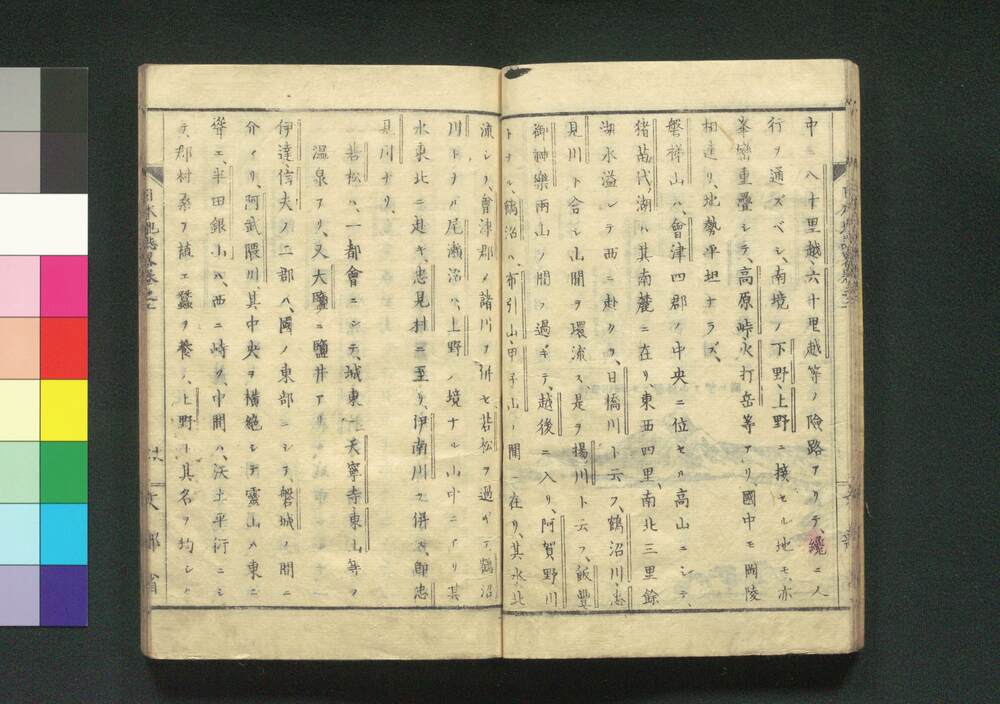 中ニ八十里越、六十里越等ノ險路アリテ、纔ニ人
行ヲ通ズベシ、南境ノ下野、上野ニ接セル地モ、亦
峯巒重疊シテ、高原峠、火打岳等アリ國中モ岡陵
相連リ、地勢平坦ナラズ、
磐梯山ハ、會津四郡ノ中央ニ位セル高山ニシテ、
猪苗代湖ハ其南麓ニ在リ、東西四里、南北三里餘
湖水溢レテ西ニ赴クヲ、日橋川ト云フ、鶴沼川、忠
見川ト合シ山間ヲ環流ス是ヲ揚川ト云フ、飯豐
御神樂兩山ノ間ヲ過ギテ、越後ニ入リ、阿賀野川
トナル、鶴沼ハ、布引山、甲子山ノ間ニ在リ、其水北
流シテ、會津郡ノ諸川ヲ併セ若松ヲ過ギテ鶴沼
川トナル尾瀬沼ハ、上野ノ境ナル山中ニアリ其
水東北ニ赴キ、忠見村ニ至リ、伊南川ヲ併ス、即忠
見川ナリ、
若松ハ、一都會ニシテ、城東ニ天寧寺東山等ノ
溫泉アリ、又大鹽ニ鹽井アリ
伊達、信夫ノ二郡ハ、國ノ東部ニシテ、磐城ノ間ニ
介マリ、阿武隈川、其中央ヲ橫絶シテ靈山ハ東ニ
聳エ、半田銀山ハ、西ニ峙ツ、中間ハ、沃土平衍ニシ
テ、郡村桑ヲ植エ蠶ヲ養フ、上野ト其名ヲ均シク
日本地誌略卷之二
文部省